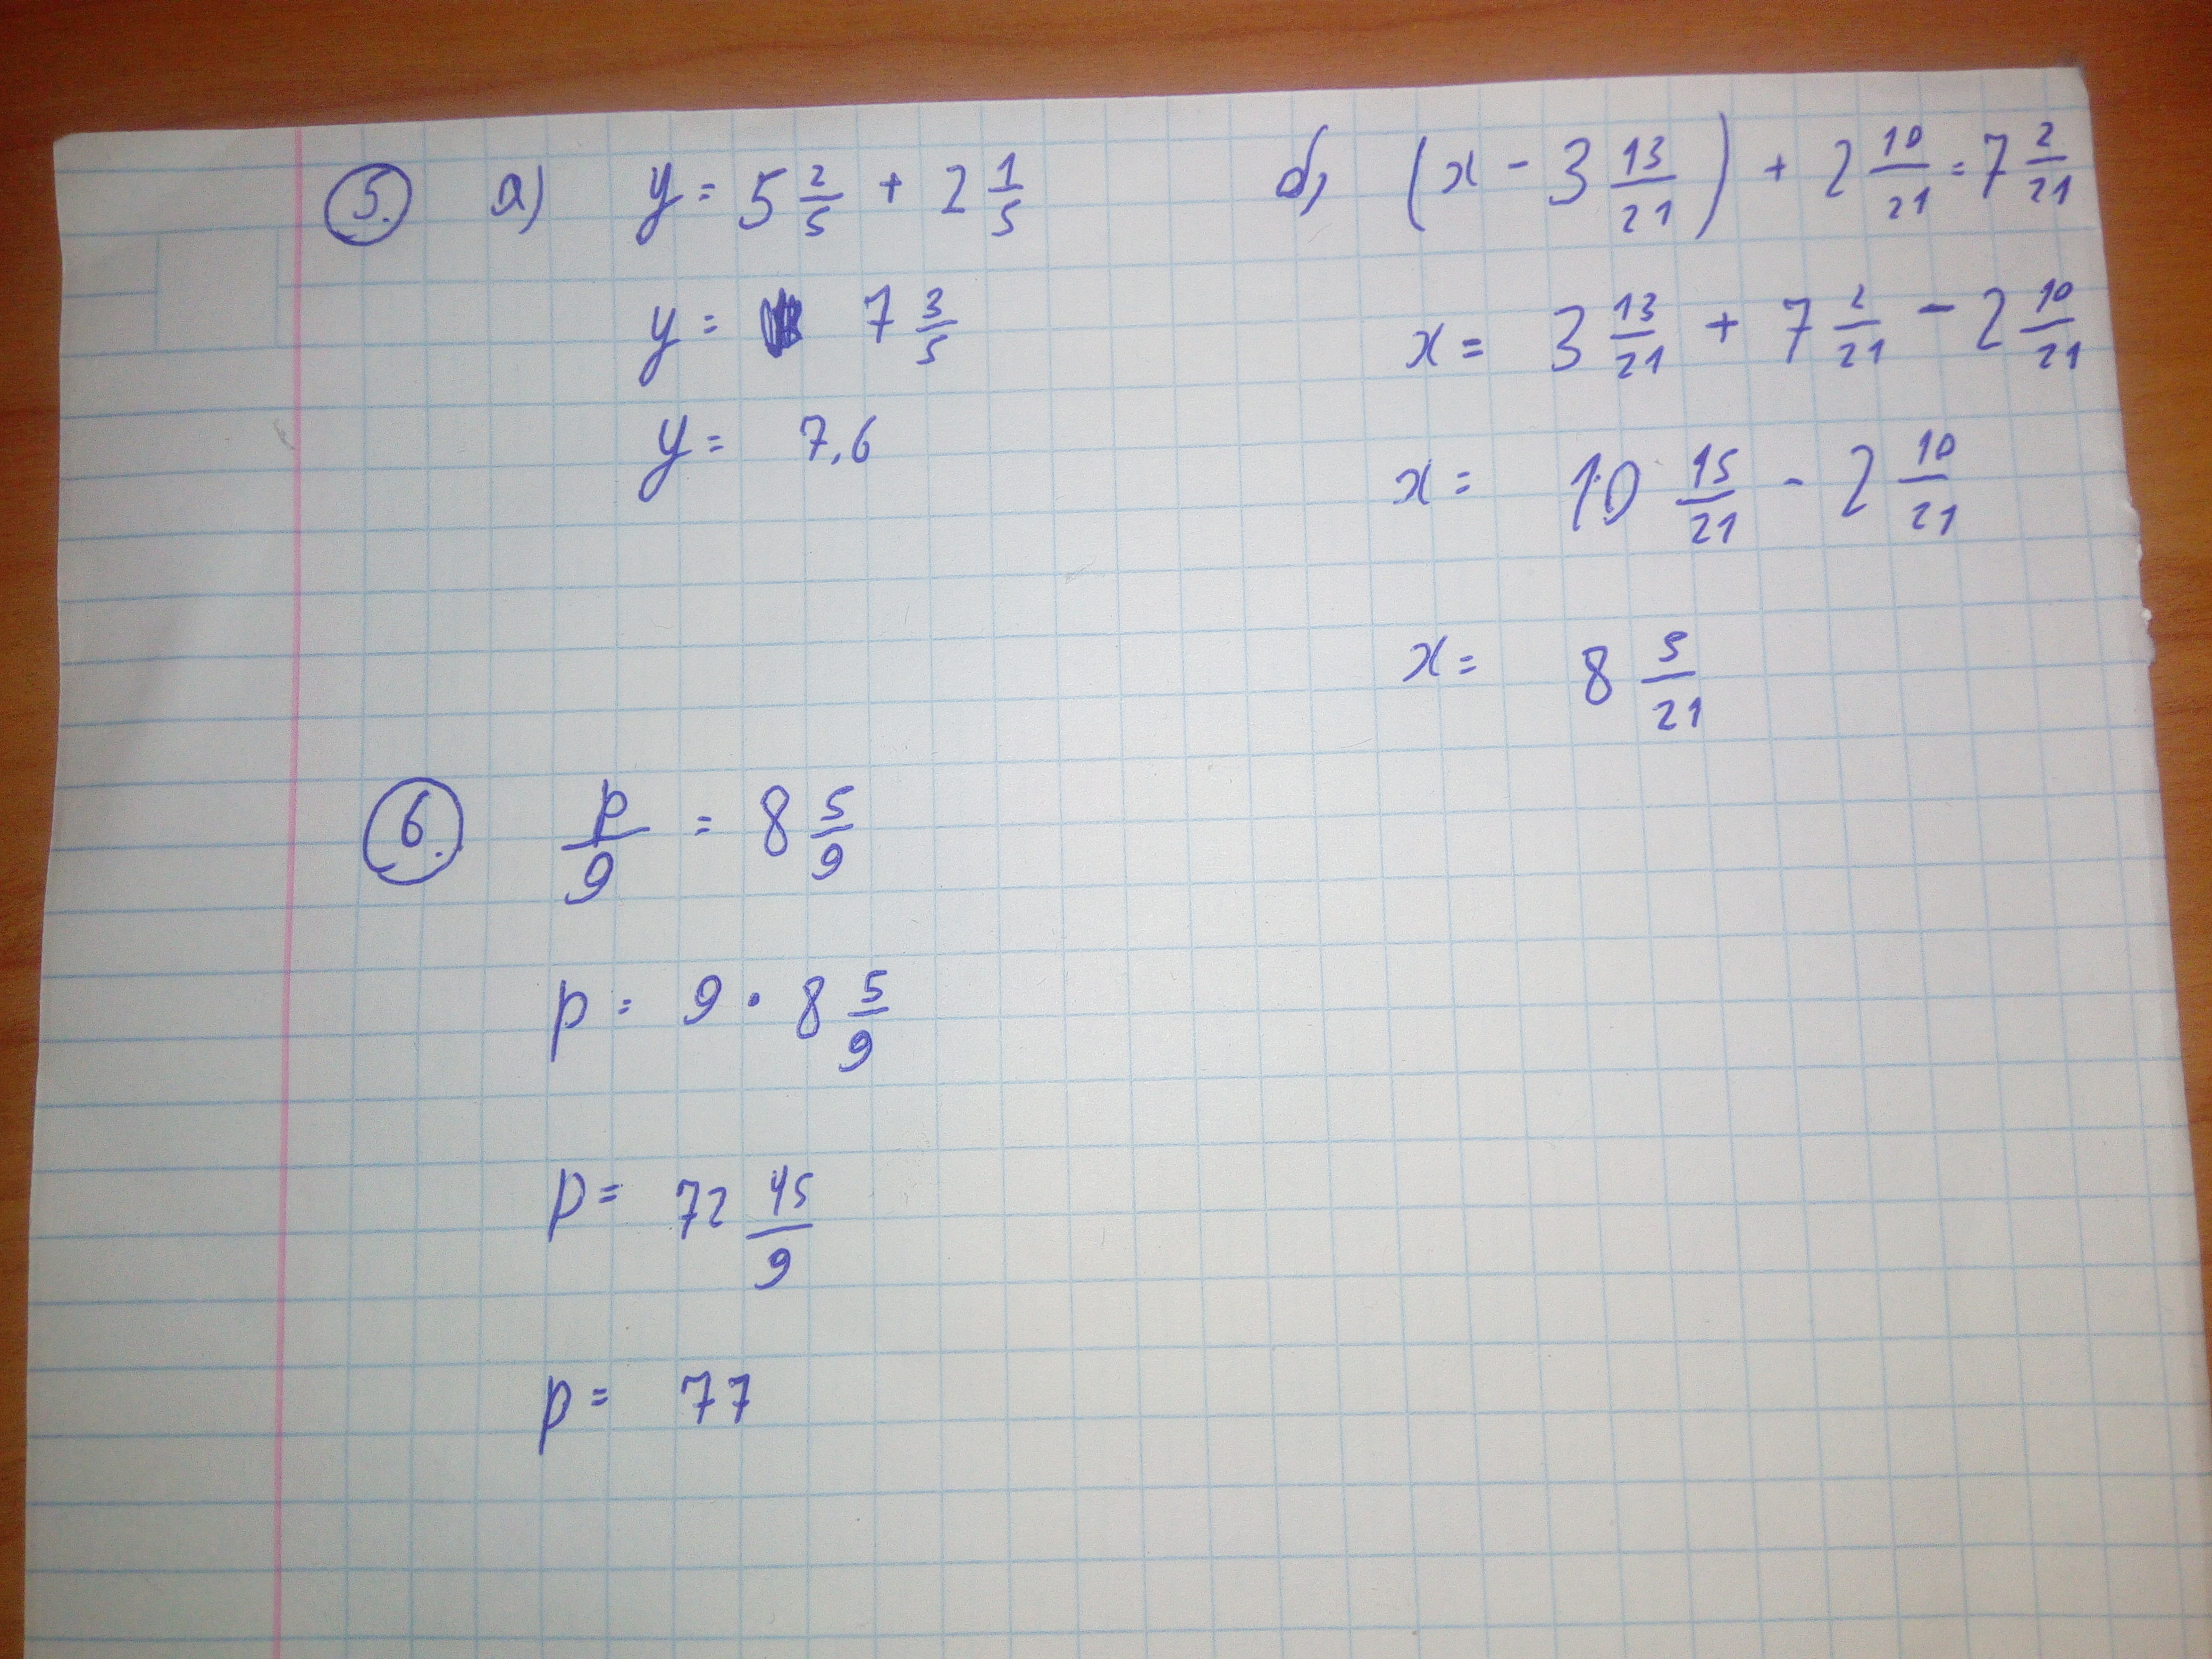 5. а) y = 5 2/5 + 2 1/5
y = 7 3/5
y = 7,6
б) (x - 3 13/21) + 2 10/21 = 7 2/21
x = 3 13/21 + 7 2/21 - 2 10/21
x = 10 15/21 - 2 10/21
x = 8 5/21
6. p/9 = 8 5/9
p = 9 · 8 5/9
p = 72 45/9
p = 77